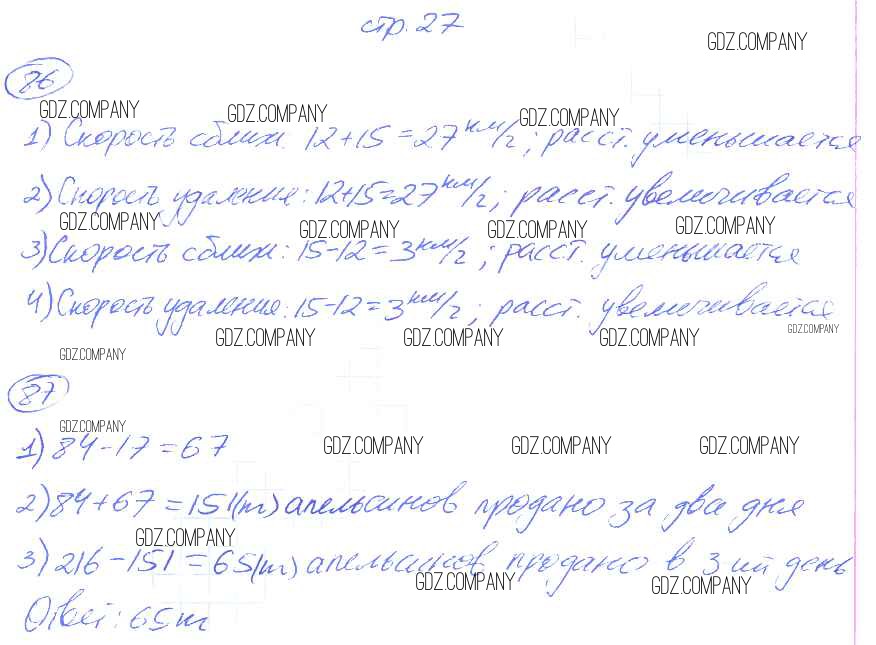 стр. 27
GDZ.COMPANY
86
GDZ.COMPANY GDZ.COMPANY GDZ.COMPANY
1) Скорость сближ. 12+15=27 км/г; расст. уменьшается
2) Скорость удаления: 12+15=27 км/г; расст. увеличивается
GDZ.COMPANY GDZ.COMPANY GDZ.COMPANY GDZ.COMPANY
3) Скорость сближ: 15-12=3 км/г; расст. уменьшается
4) Скорость удаления: 15-12=3 км/г; расст. увеличивается
GDZ.COMPANY GDZ.COMPANY GDZ.COMPANY GDZ.COMPANY GDZ.COMPANY
87
GDZ.COMPANY
1) 84-17=67 GDZ.COMPANY GDZ.COMPANY GDZ.COMPANY
2) 84+67=151(т) апельсинов продано за два дня
GDZ.COMPANY
3) 216-151=65(т) апельсинов продано в 3ий день
GDZ.COMPANY GDZ.COMPANY
Ответ: 65т